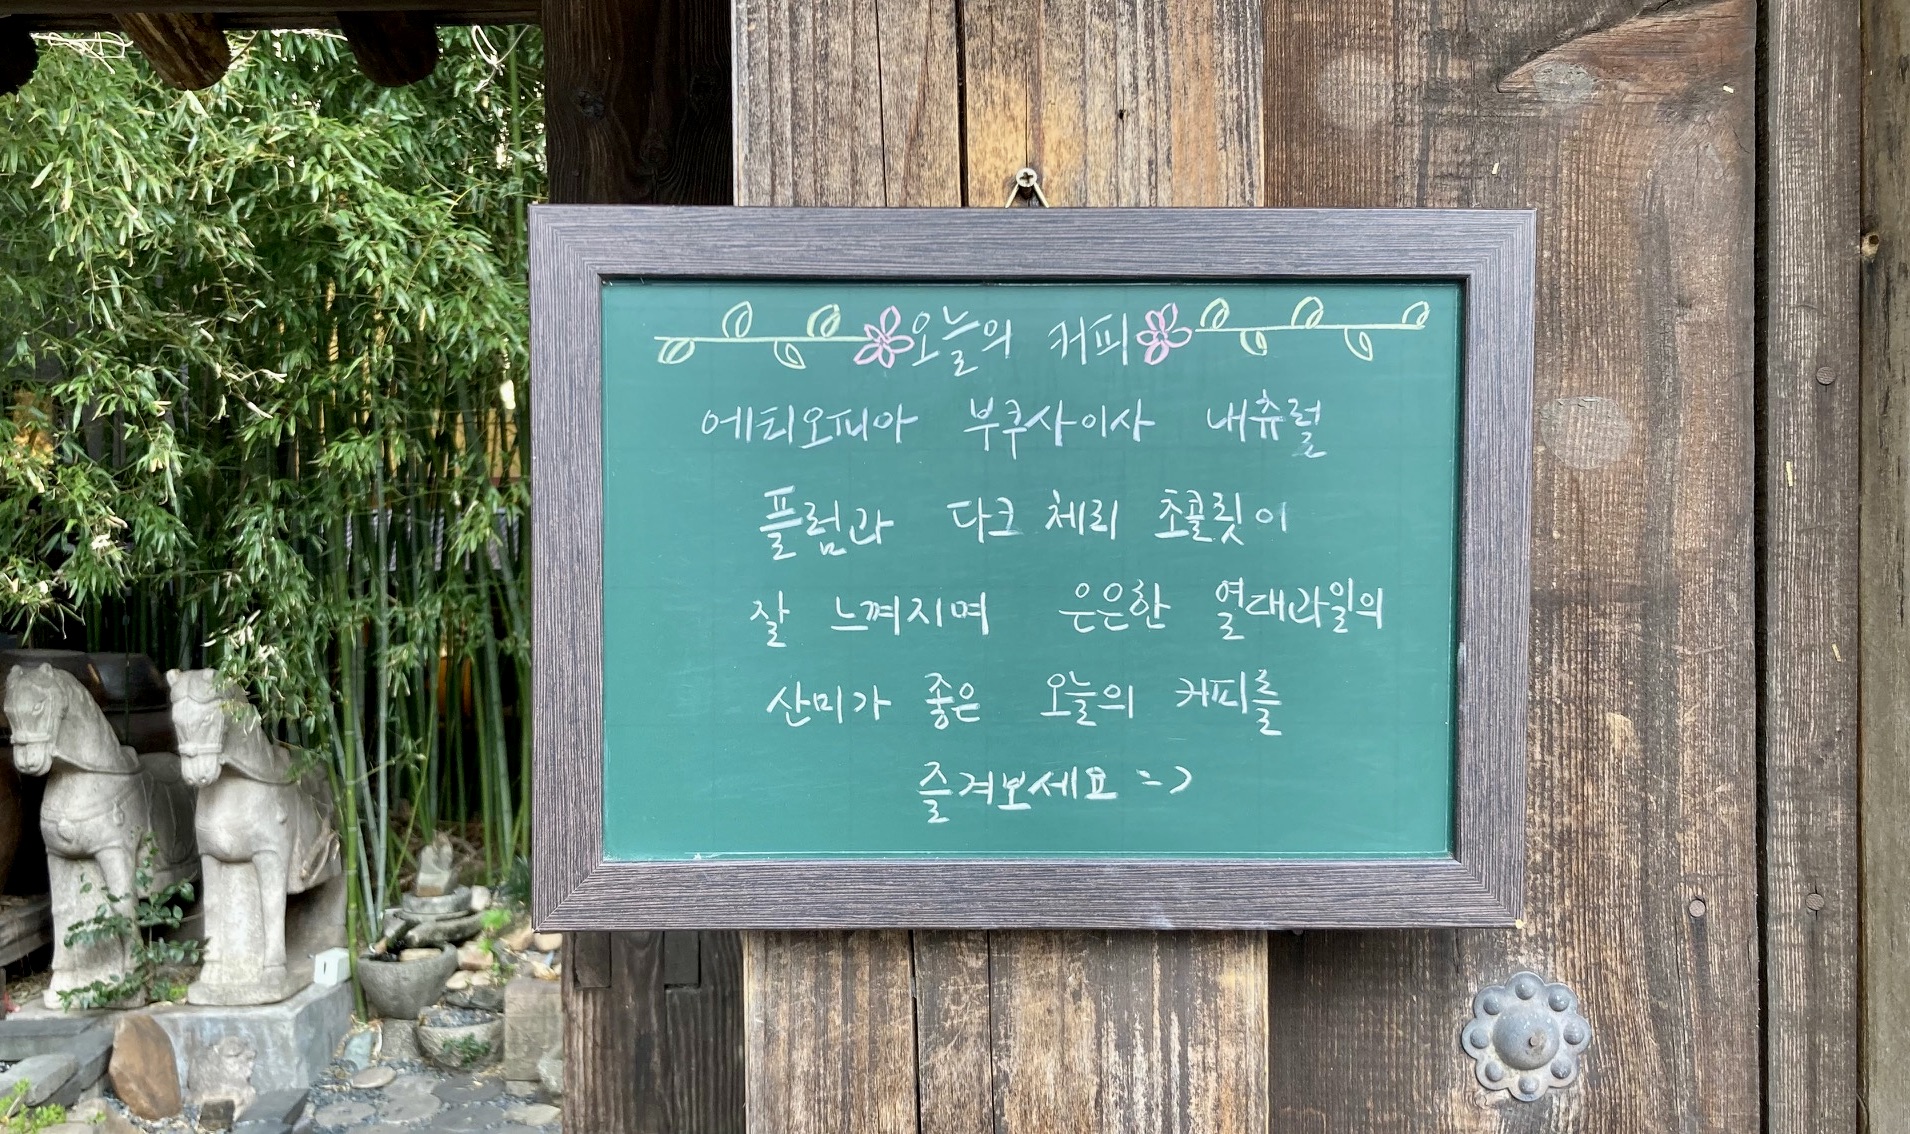 오늘의 커피
에티오피아 부쿠사이사 내츄럴
플럼과 다크 체리 초콜릿이
잘 느껴지며 은은한 열대과일의
산미가 좋은 오늘의 커피를
즐겨보세요 :-)